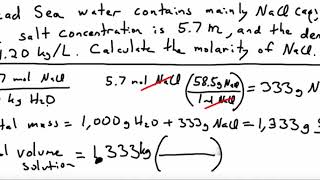 ead Sea water contains mainly NaCl (aq)
salt concentration is 5.7 m, and the den
1.20 kg/L. Calculate the molarity of NaCl.
7 mol NaCl 5.7 mol NaCl (58.5g NaCl = 333g N
kg H2O 1 mol NaCl)
tal mass = 1,000g H2O + 333g NaCl = 1,333g S
l volume solution = 1.333kg (